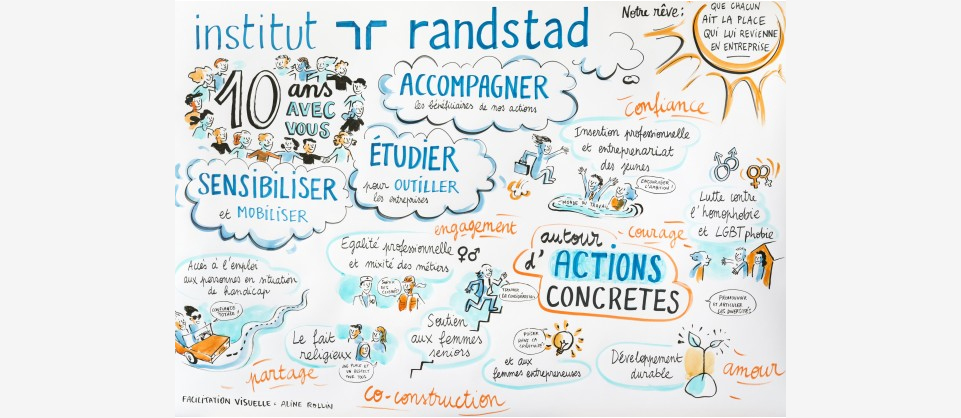 institut randstad
Notre rêve :
QUE CHACUN
AIT LA PLACE
QUI LUI REVIENNE
EN ENTREPRISE
10 ans
AVEC
VOUS
ACCOMPAGNER
les bénéficiaires de nos actions
ÉTUDIER
pour OUTILLER
les entreprises
SENSIBILISER
et MOBILISER
confiance
Insertion professionnelle
et entreprenariat
des jeunes
ENCOURAGER
L'AMBITION !
MONDE DU TRAVAIL
Lutte contre
l'homophobie
et LGBTphobie
PROMOUVOIR
ET ARTICULER
LES DIVERSITÉS
engagement
courage
autour
d'ACTIONS
CONCRETES
Egalité professionnelle
et mixité des métiers
SORTIR
DES
CLICHÉS
Accès à l'emploi
aux personnes en situation
de handicap
CONFIANCE
TOTALE !
Le fait
religieux
UNE PLACE ET
UN RESPECT
POUR TOUS
Soutien
aux femmes
seniors
et aux
femmes entrepreneuses
PUISER
DANS LA
Développement
durable
amour
partage
co-construction
FACILITATION VISUELLE - ALINE ROLLIN